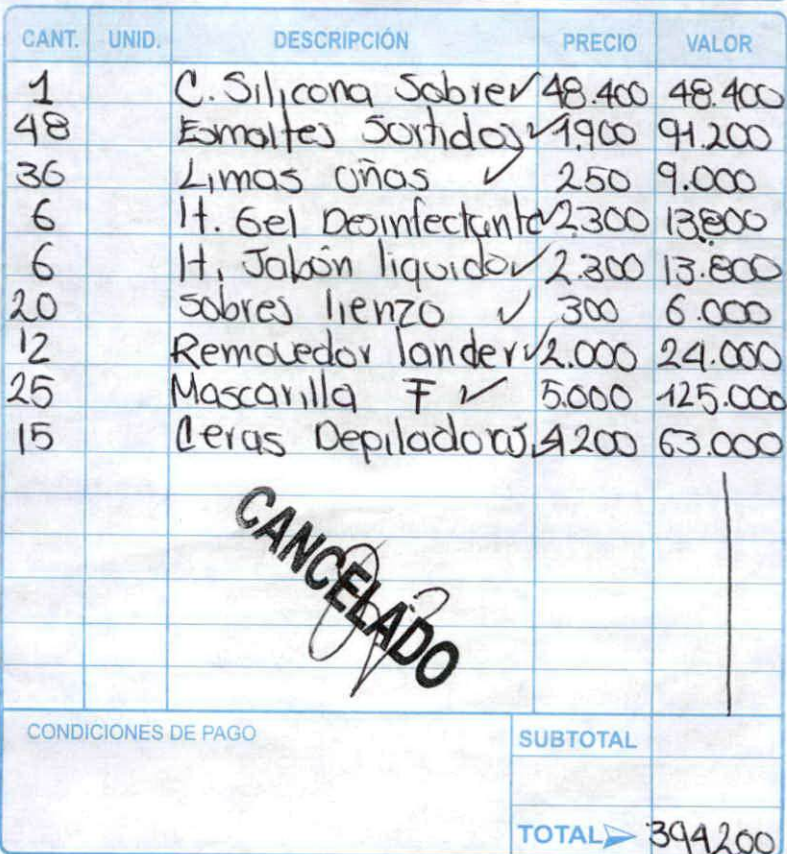 CANT. UNID. DESCRIPCIÓN PRECIO VALOR
1 C. Silicona Sobre 48.400 48.400
48 Esmaltes Sortidos 1.900 91.200
36 Limas Uñas 250 9.000
6 lt. Gel Desinfectante 2.300 13.800
6 lt. Jabón liquido 2.300 13.800
20 Sobres lienzo 300 6.000
12 Removedor lander 2.000 24.000
25 Mascarilla F 5.000 125.000
15 Ceras Depiladoras 4200 63.000
CANCELADO
CONDICIONES DE PAGO
SUBTOTAL
TOTAL 394200